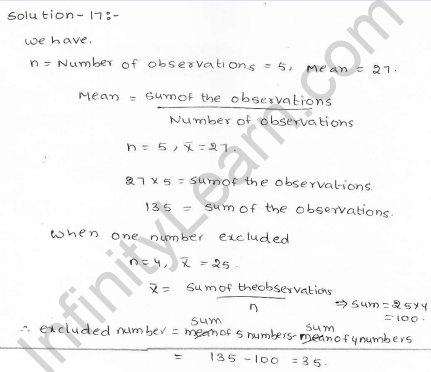 Solution-17:-
we have.
n = Number of observations = 5, Mean = 27.
Mean = Sum of the observations
Number of observations
n = 5, x̄ = 27.
27 x 5 = sum of the observations.
135 = sum of the observations.
when one number excluded
n = 4, x̄ = 25.
x̄ = Sum of the observations
n
⇒ sum = 25 x 4
= 100.
sum sum
∴ excluded number = mean of 5 numbers - mean of 4 numbers
= 135 - 100 = 35.
InfinityLearn.com